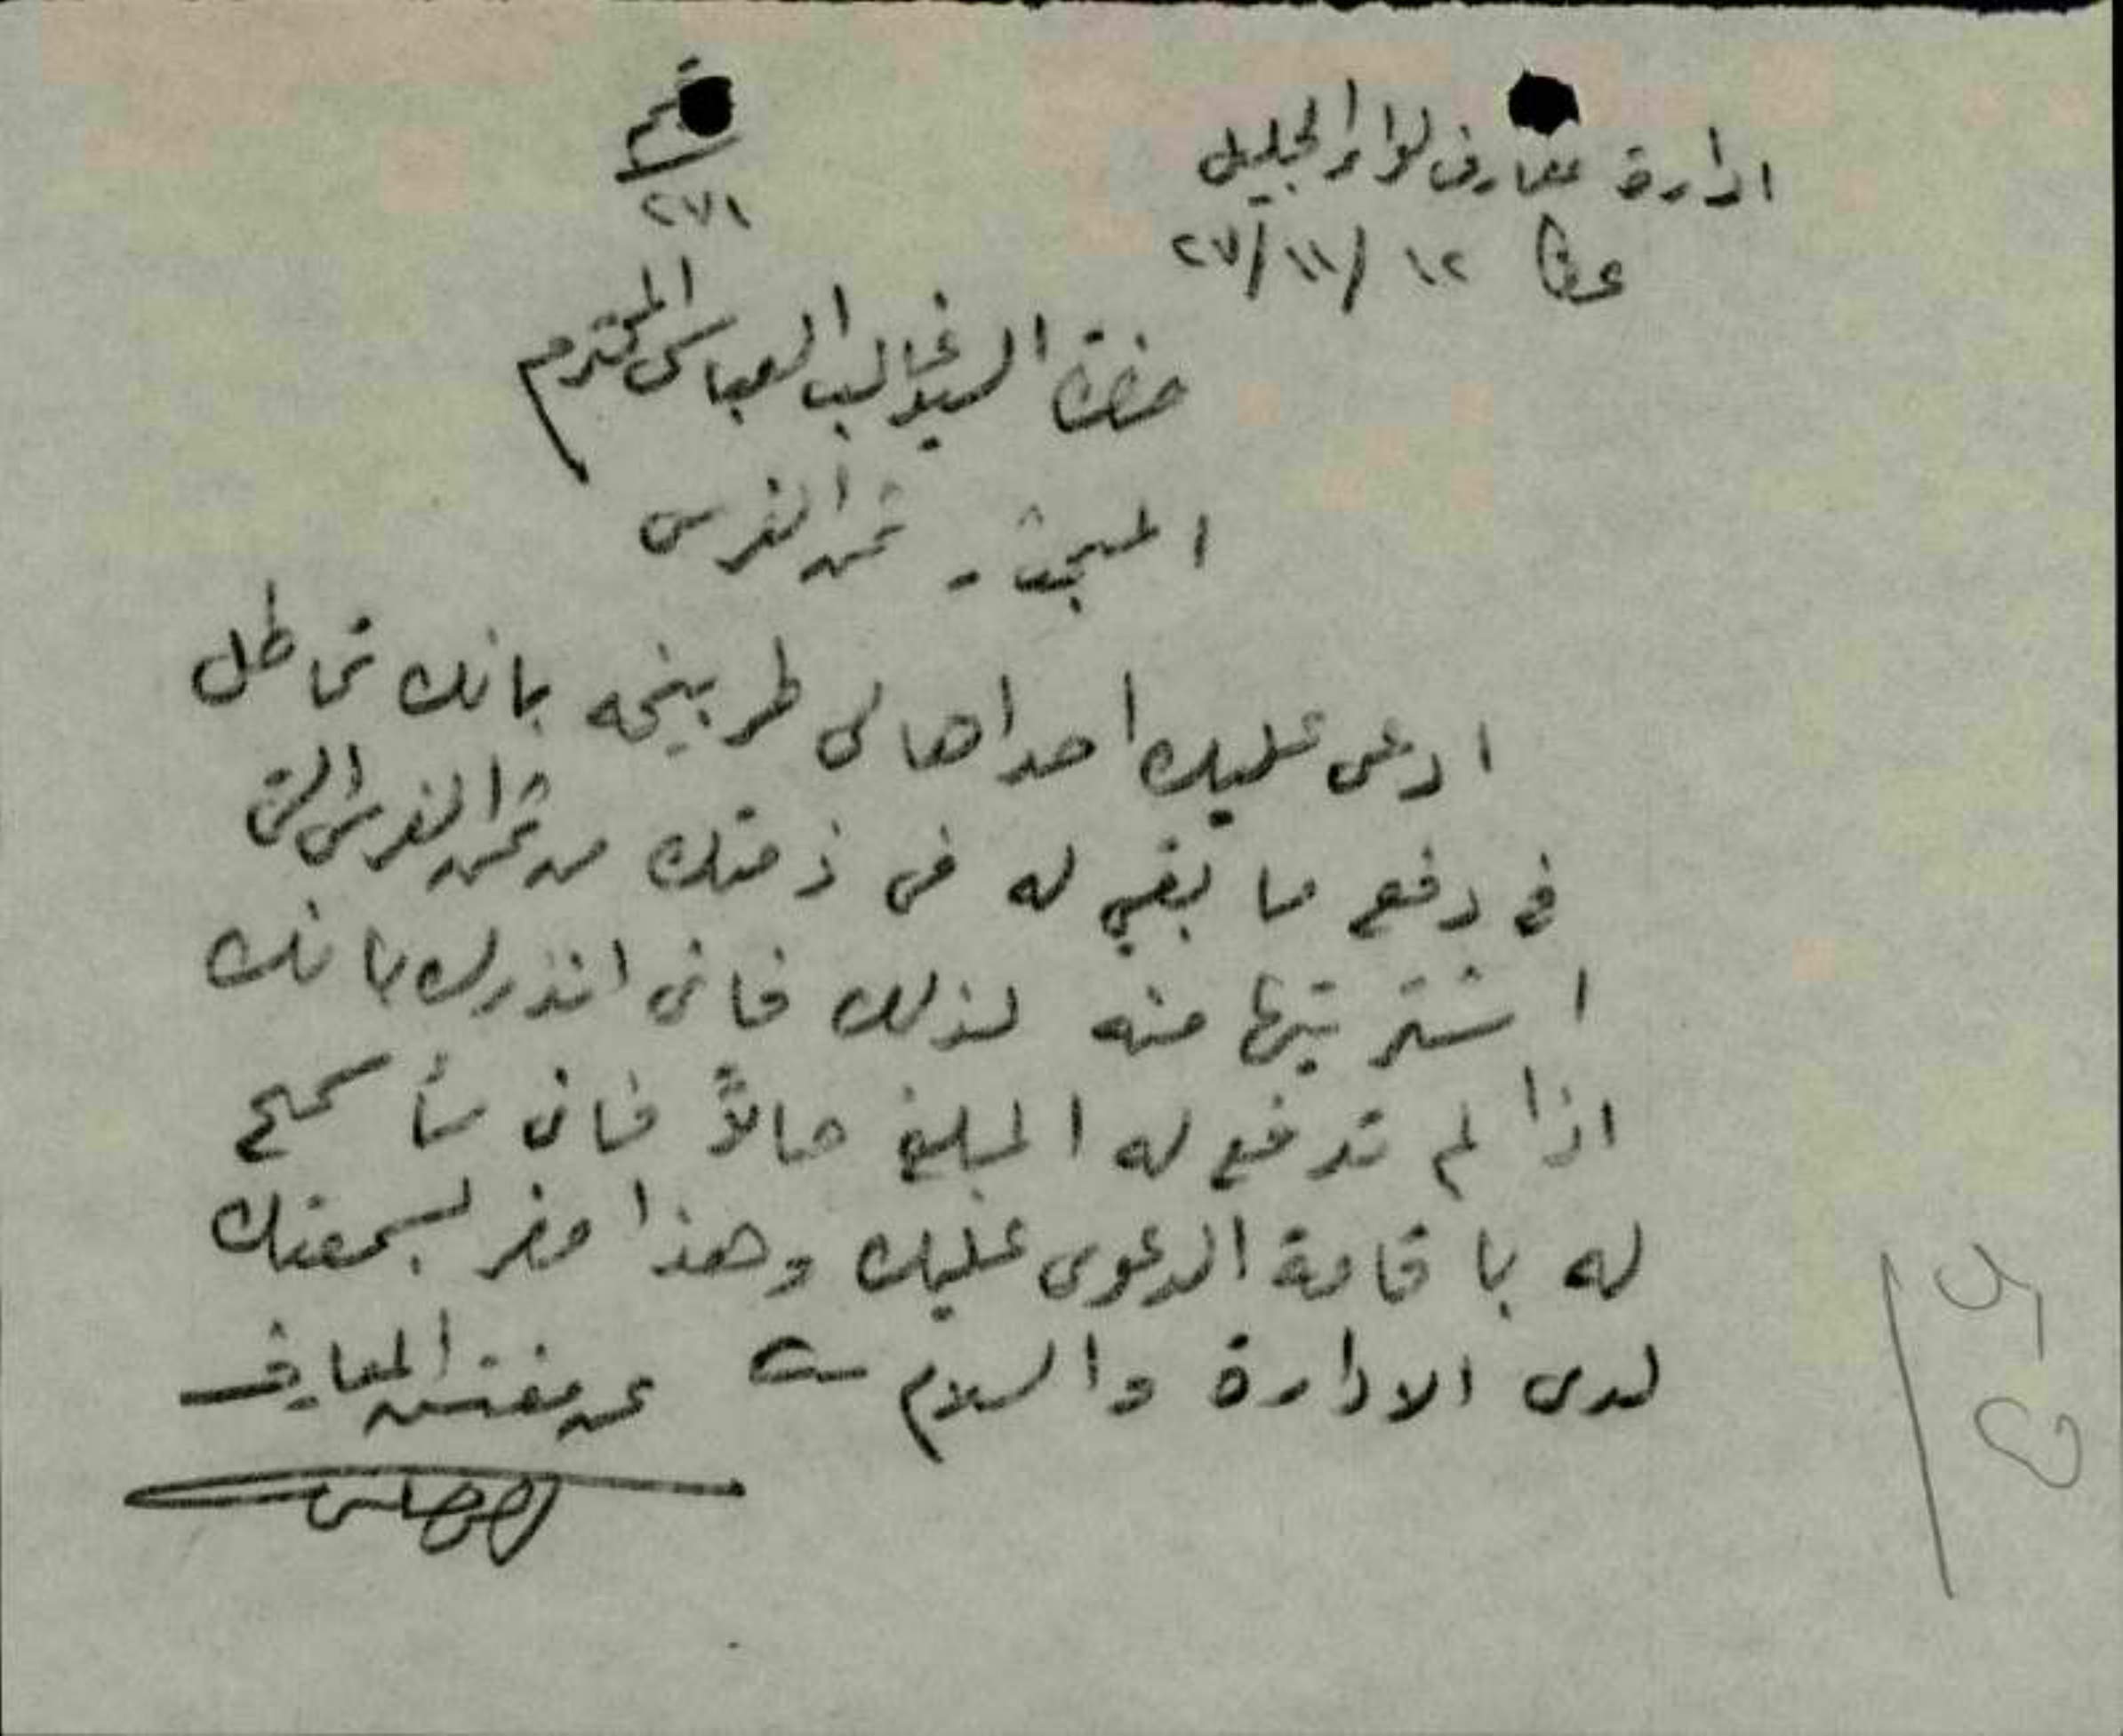 ادارة معارف لواء الجليل
عكا ١٢/١١/٢٧
٢٧١
حضرة السيد غالب العباسي المحترم
المبحث - ثمن الفرس
ادعى عليك احد اهالي طربيخه بانك تماطل
في دفع ما بقي له في ذمتك من ثمن الفرس التي
اشتريتها منه لذلك فاني انذرك بانك
اذا لم تدفع له المبلغ حالاً فاني سأسمح
له باقامة الدعوى عليك وهذا مضر لسمعتك
لدى الادارة والسلام
عن مفتش المعارف